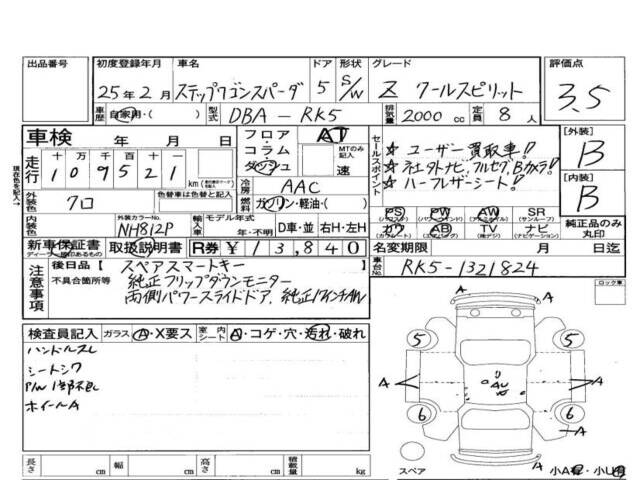 出品番号 初度登録年月 車名 ドア 形状 グレード 評価点
25年2月 ステップワゴンスパーダ 5 S/W Z クールスピリット 3.5
車歴 自家用・( ) 型式 DBA-RK5 排気量 2000 cc 定員 8人
車検 年 月 日 フロア・コラム・ダッシュ AT MTのみ記入 速
セールスポイント
☆ユーザー買取車!
☆社外ナビ、フルセグ、Bカメラ!
☆ハーフレザーシート!
[外装] B
[内装] B
走行 十万千百十一 109521 km
冷房 AAC
外装色 クロ 色替車は色を記入 燃料 ガソリン・軽油・( )
PS PW AW SR
(パワステ) (パワーウインド) (アルミホイル) (サンルーフ)
カワ AB TV ナビ
(カワシート) (エアバッグ) (ナビゲーション)
純正品のみ丸印
内装色 外装カラーNo. NH812P 輸入車 モデル年式 年・不明 D車・並 右H・左H
新車保証書 取扱説明書 R券 ¥13,840 名変期限 月 日迄
ディーラー印あるもの
注意事項 後日品【 スペアスマートキー 】 車台No. RK5-1321824
不具合箇所等 純正フリップダウンモニター
両側パワースライドドア、純正17インチAW
ロック車
検査員記入 ガラス A・X要ス 室内シート A・コゲ・穴・汚れ・破れ
ハンドルスレ
シートシワ
P/W1部不良
ホイールA
5 5
A A A
AU
6 6
A A
A
長さ cm 幅 cm 高さ cm 積載量 kg
スペア 小A有・小U有